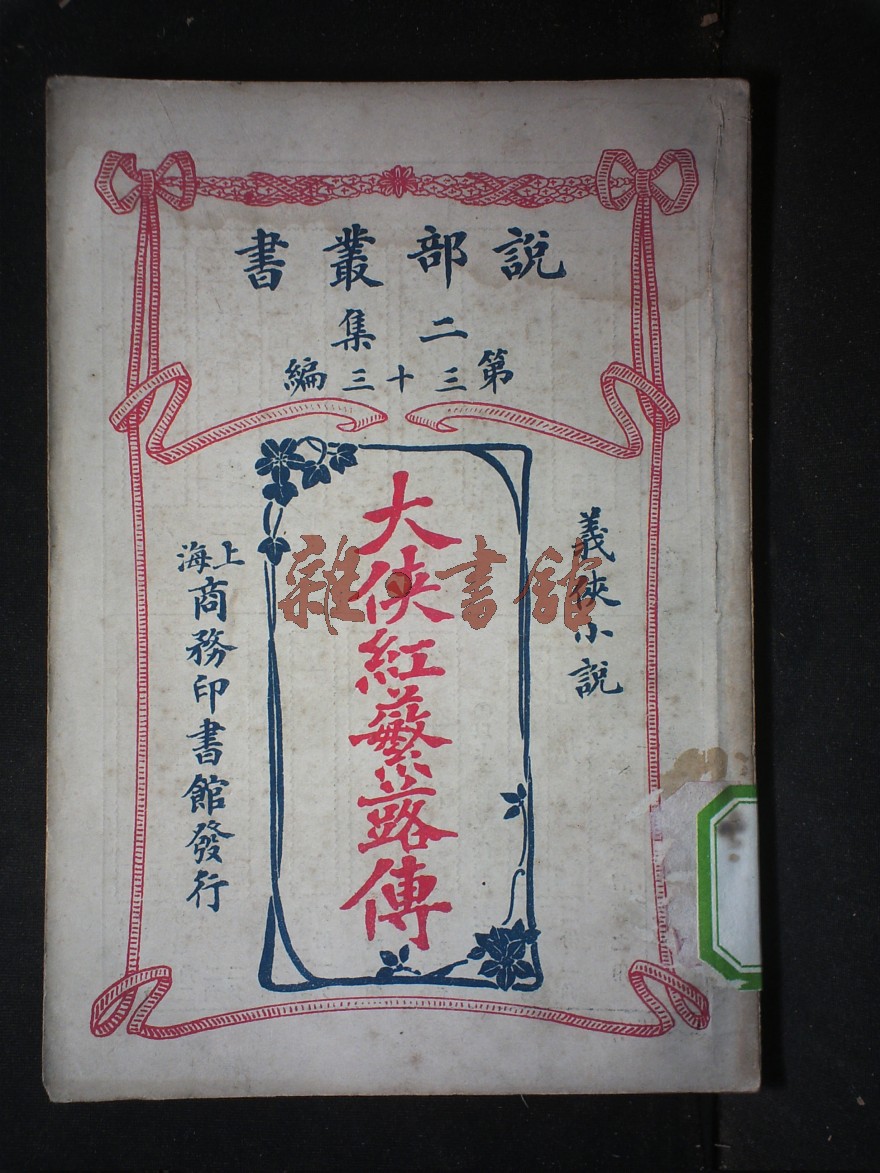 說部叢書
二集
第三十三編
義俠小說
大俠紅蘩蕗傳
上海
商務印書館發行
雜書館